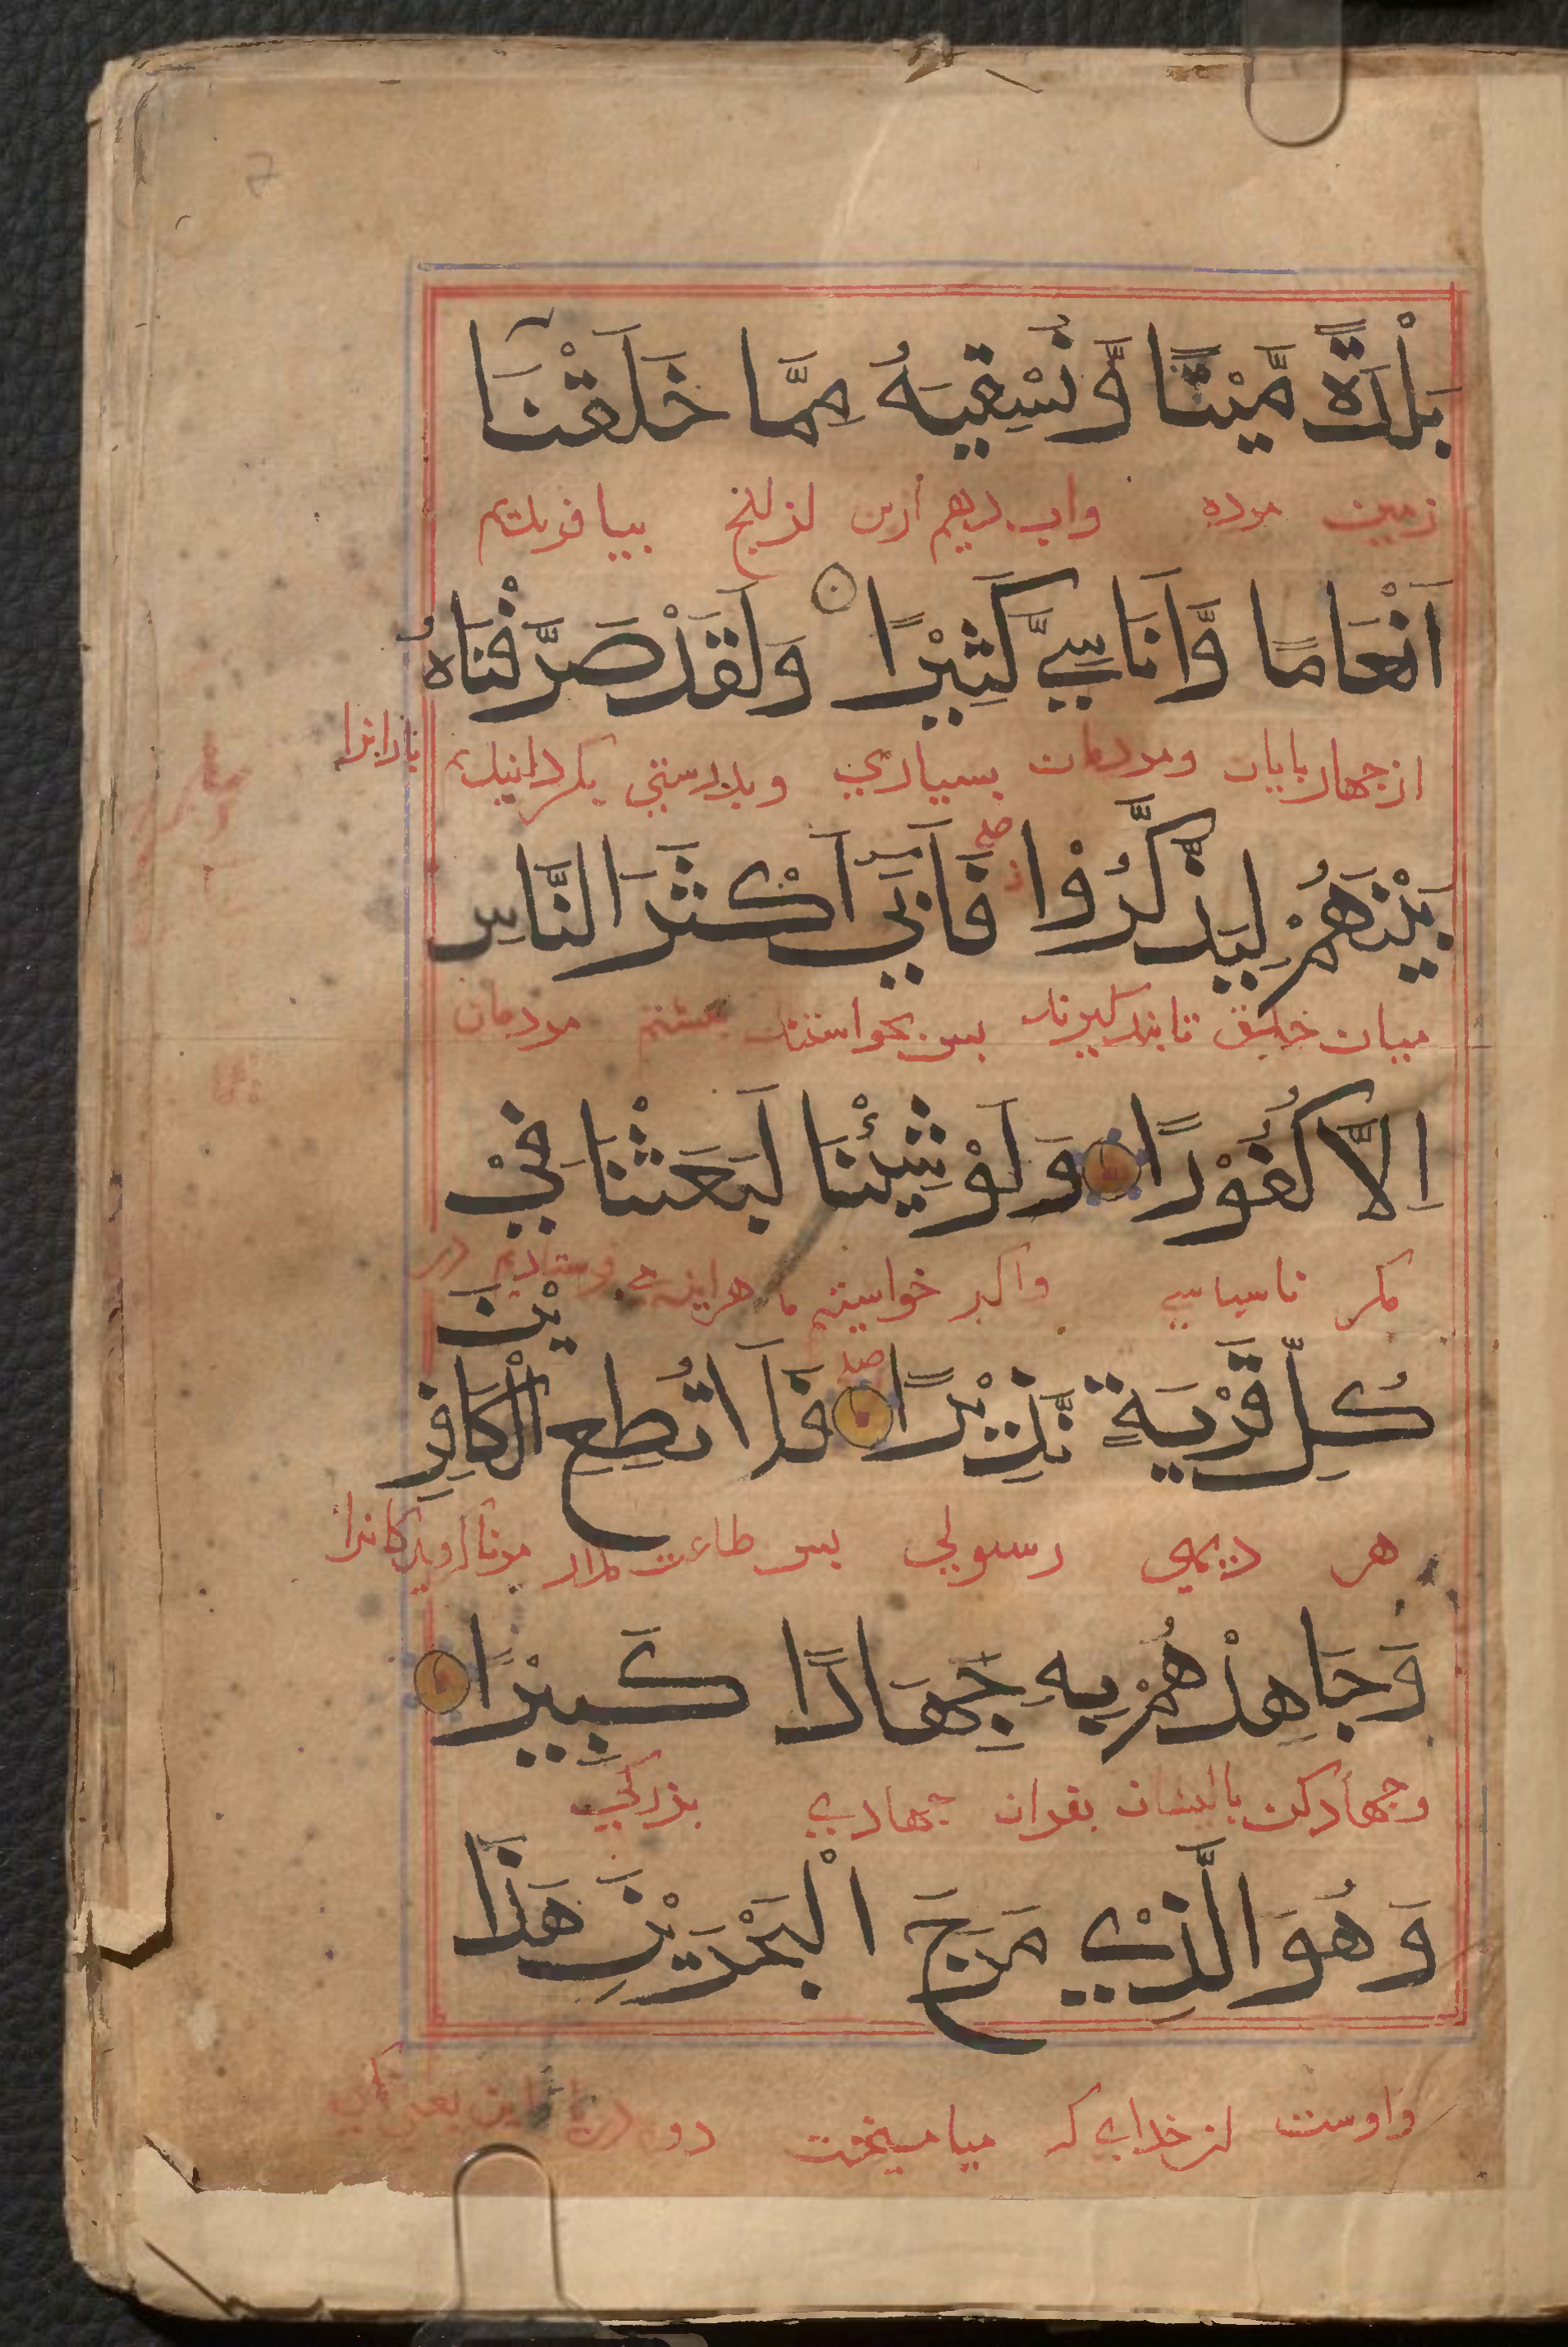 بَلْدَةً مَّيْتًا وَّنُسْقِيَهُ مِمَّا خَلَقْنَآ
زمین مرده واب دهیم ازین از انج بیافریدیم
اَنْعَامًا وَّاَنَاسِيَّ كَثِيْرًا وَلَقَدْ صَرَّفْنَاهُ
از جهارپایان ومردمان بسیاری وبدرستی بکردانیدیم بارانرا
بَيْنَهُمْ لِيَذَّكَّرُوْا صلے فَاَبٰٓي اَكْثَرَ النَّاسِ
میان خلق تا پند کیرند بس نخواستند بیشتر مردمان
اِلَّا كُفُوْرًا وَلَوْ شِيْئْنَا لَبَعَثْنَا فِيْ
مكر ناسپاسی واكر خواستیم ما هراینه فرستادیم در
كُلِّ قَرْيَةٍ نَّذِيْرًا صلے فَلَا تُطِعِ الْكَافِرِيْنَ
هر دیهی رسولی بس طاعت مدار مرنا كرویدكانرا
وَجَاهِدْهُمْ بِهٖ جِهَادًا كَبِيْرًا
وجهاد كن با ایشان بقران جهادی بزركی
وَهُوَ الَّذِيْ مَرَجَ الْبَحْرَيْنِ هَذَا
واوست ان خدای كه بیامیخت دو دریا این یعنی یكی